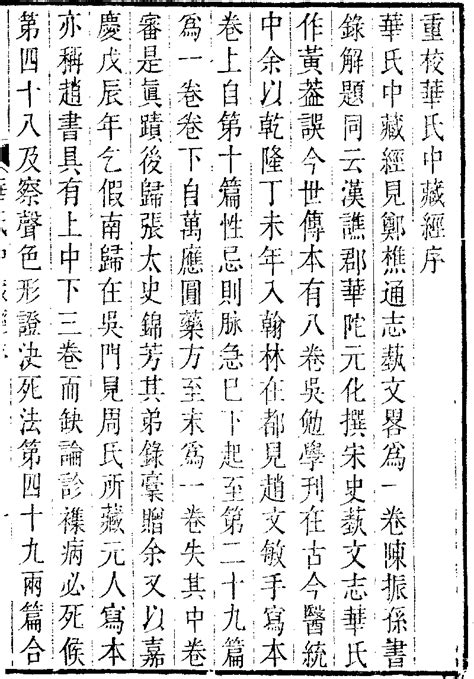 重校華氏中藏經序
華氏中藏經見鄭樵通志蓺文畧爲一卷陳振孫書
錄解題同云漢譙郡華陀元化撰宋史蓺文志華氏
作黃葢誤今世傳本有八卷吳勉學刊在古今醫統
中余以乾隆丁未年入翰林在都見趙文敏手寫本
卷上自第十篇性忌則脉急已下起至第二十九篇
爲一卷卷下自萬應圓藥方至末爲一卷失其中卷
審是眞蹟後歸張太史錦芳其弟錄稾贈余又以嘉
慶戊辰年乞假南歸在吳門見周氏所藏元人寫本
亦稱趙書具有上中下三卷而缺論診襍病必死候
第四十八及察聲色形證決死法第四十九兩篇合